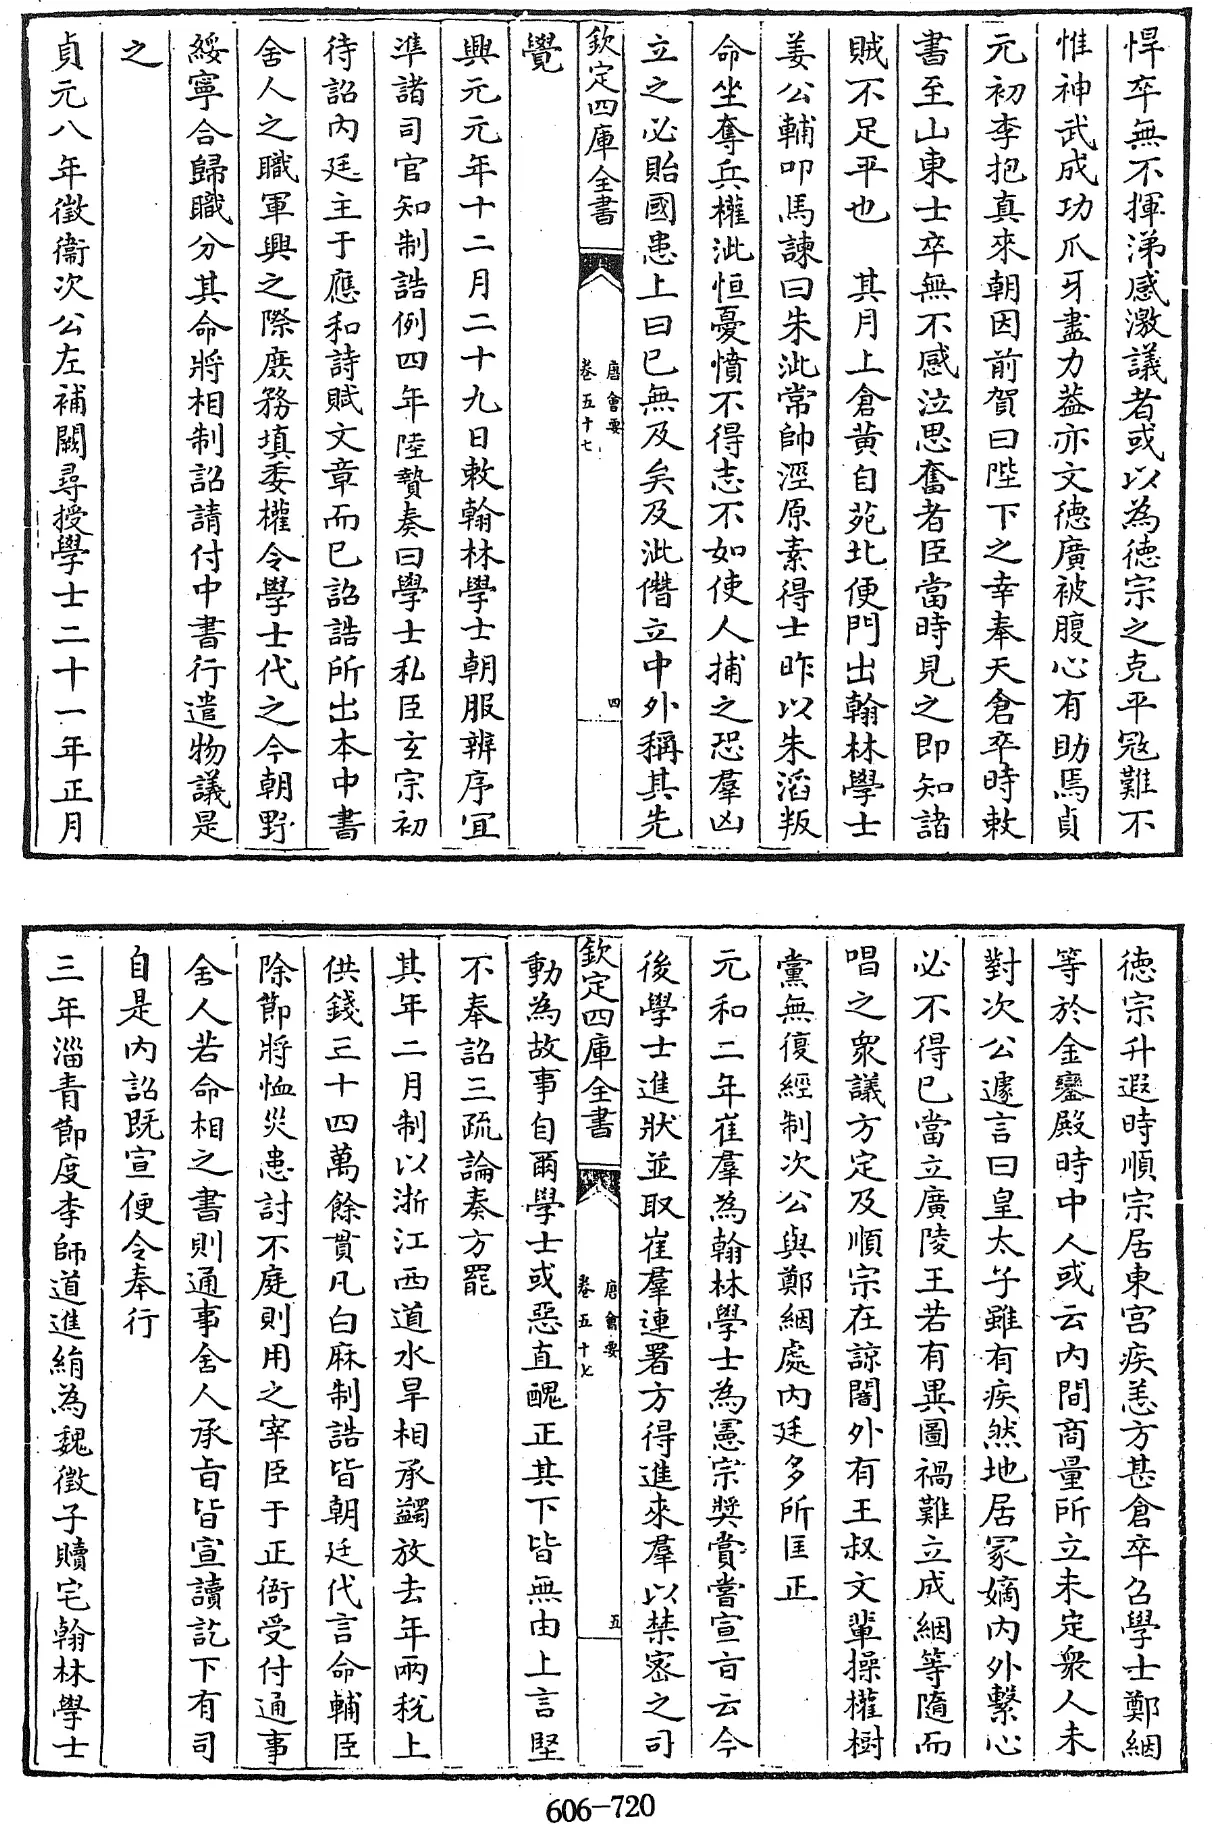 悍卒無不揮涕感激議者或以為德宗之克平寇難不
惟神武成功爪牙盡力葢亦文德廣被腹心有助焉貞
元初李抱真來朝因前賀曰陛下之幸奉天倉卒時敕
書至山東士卒無不感泣思奮者臣當時見之即知諸
賊不足平也　其月上倉黄自苑北便門出翰林學士
姜公輔叩馬諫曰朱泚常帥涇原素得士昨以朱滔叛
命坐奪兵權泚恒憂憤不得志不如使人捕之恐羣凶
立之必貽國患上曰已無及矣及泚僭立中外稱其先
欽定四庫全書
唐會要
卷五十七
四
覺
興元元年十二月二十九日敕翰林學士朝服辨序宜
準諸司官知制誥例四年陸贄奏曰學士私臣玄宗初
待詔内廷主于應和詩賦文章而已詔誥所出本中書
舍人之職軍興之際庶務填委權令學士代之今朝野
綏寧合歸職分其命將相制詔請付中書行遣物議是
之
貞元八年徵衞次公左補闕尋授學士二十一年正月
德宗升遐時順宗居東宫疾恙方甚倉卒召學士鄭絪
等於金鑾殿時中人或云内間商量所立未定衆人未
對次公遽言曰皇太子雖有疾然地居冢嫡内外繫心
必不得已當立廣陵王若有異圖禍難立成絪等隨而
唱之衆議方定及順宗在諒闇外有王叔文輩操權樹
黨無復經制次公與鄭絪處内廷多所匡正
元和二年崔羣為翰林學士為憲宗奬賞嘗宣旨云今
後學士進狀並取崔羣連署方得進來羣以禁密之司
欽定四庫全書
唐會要
卷五十七
五
動為故事自爾學士或惡直醜正其下皆無由上言堅
不奉詔三疏論奏方罷
其年二月制以浙江西道水旱相承蠲放去年兩税上
供錢三十四萬餘貫凡白麻制誥皆朝廷代言命輔臣
除節將恤災患討不庭則用之宰臣于正衙受付通事
舍人若命相之書則通事舍人承旨皆宣讀訖下有司
自是内詔既宣便令奉行
三年淄青節度李師道進絹為魏徵子贖宅翰林學士
606-720